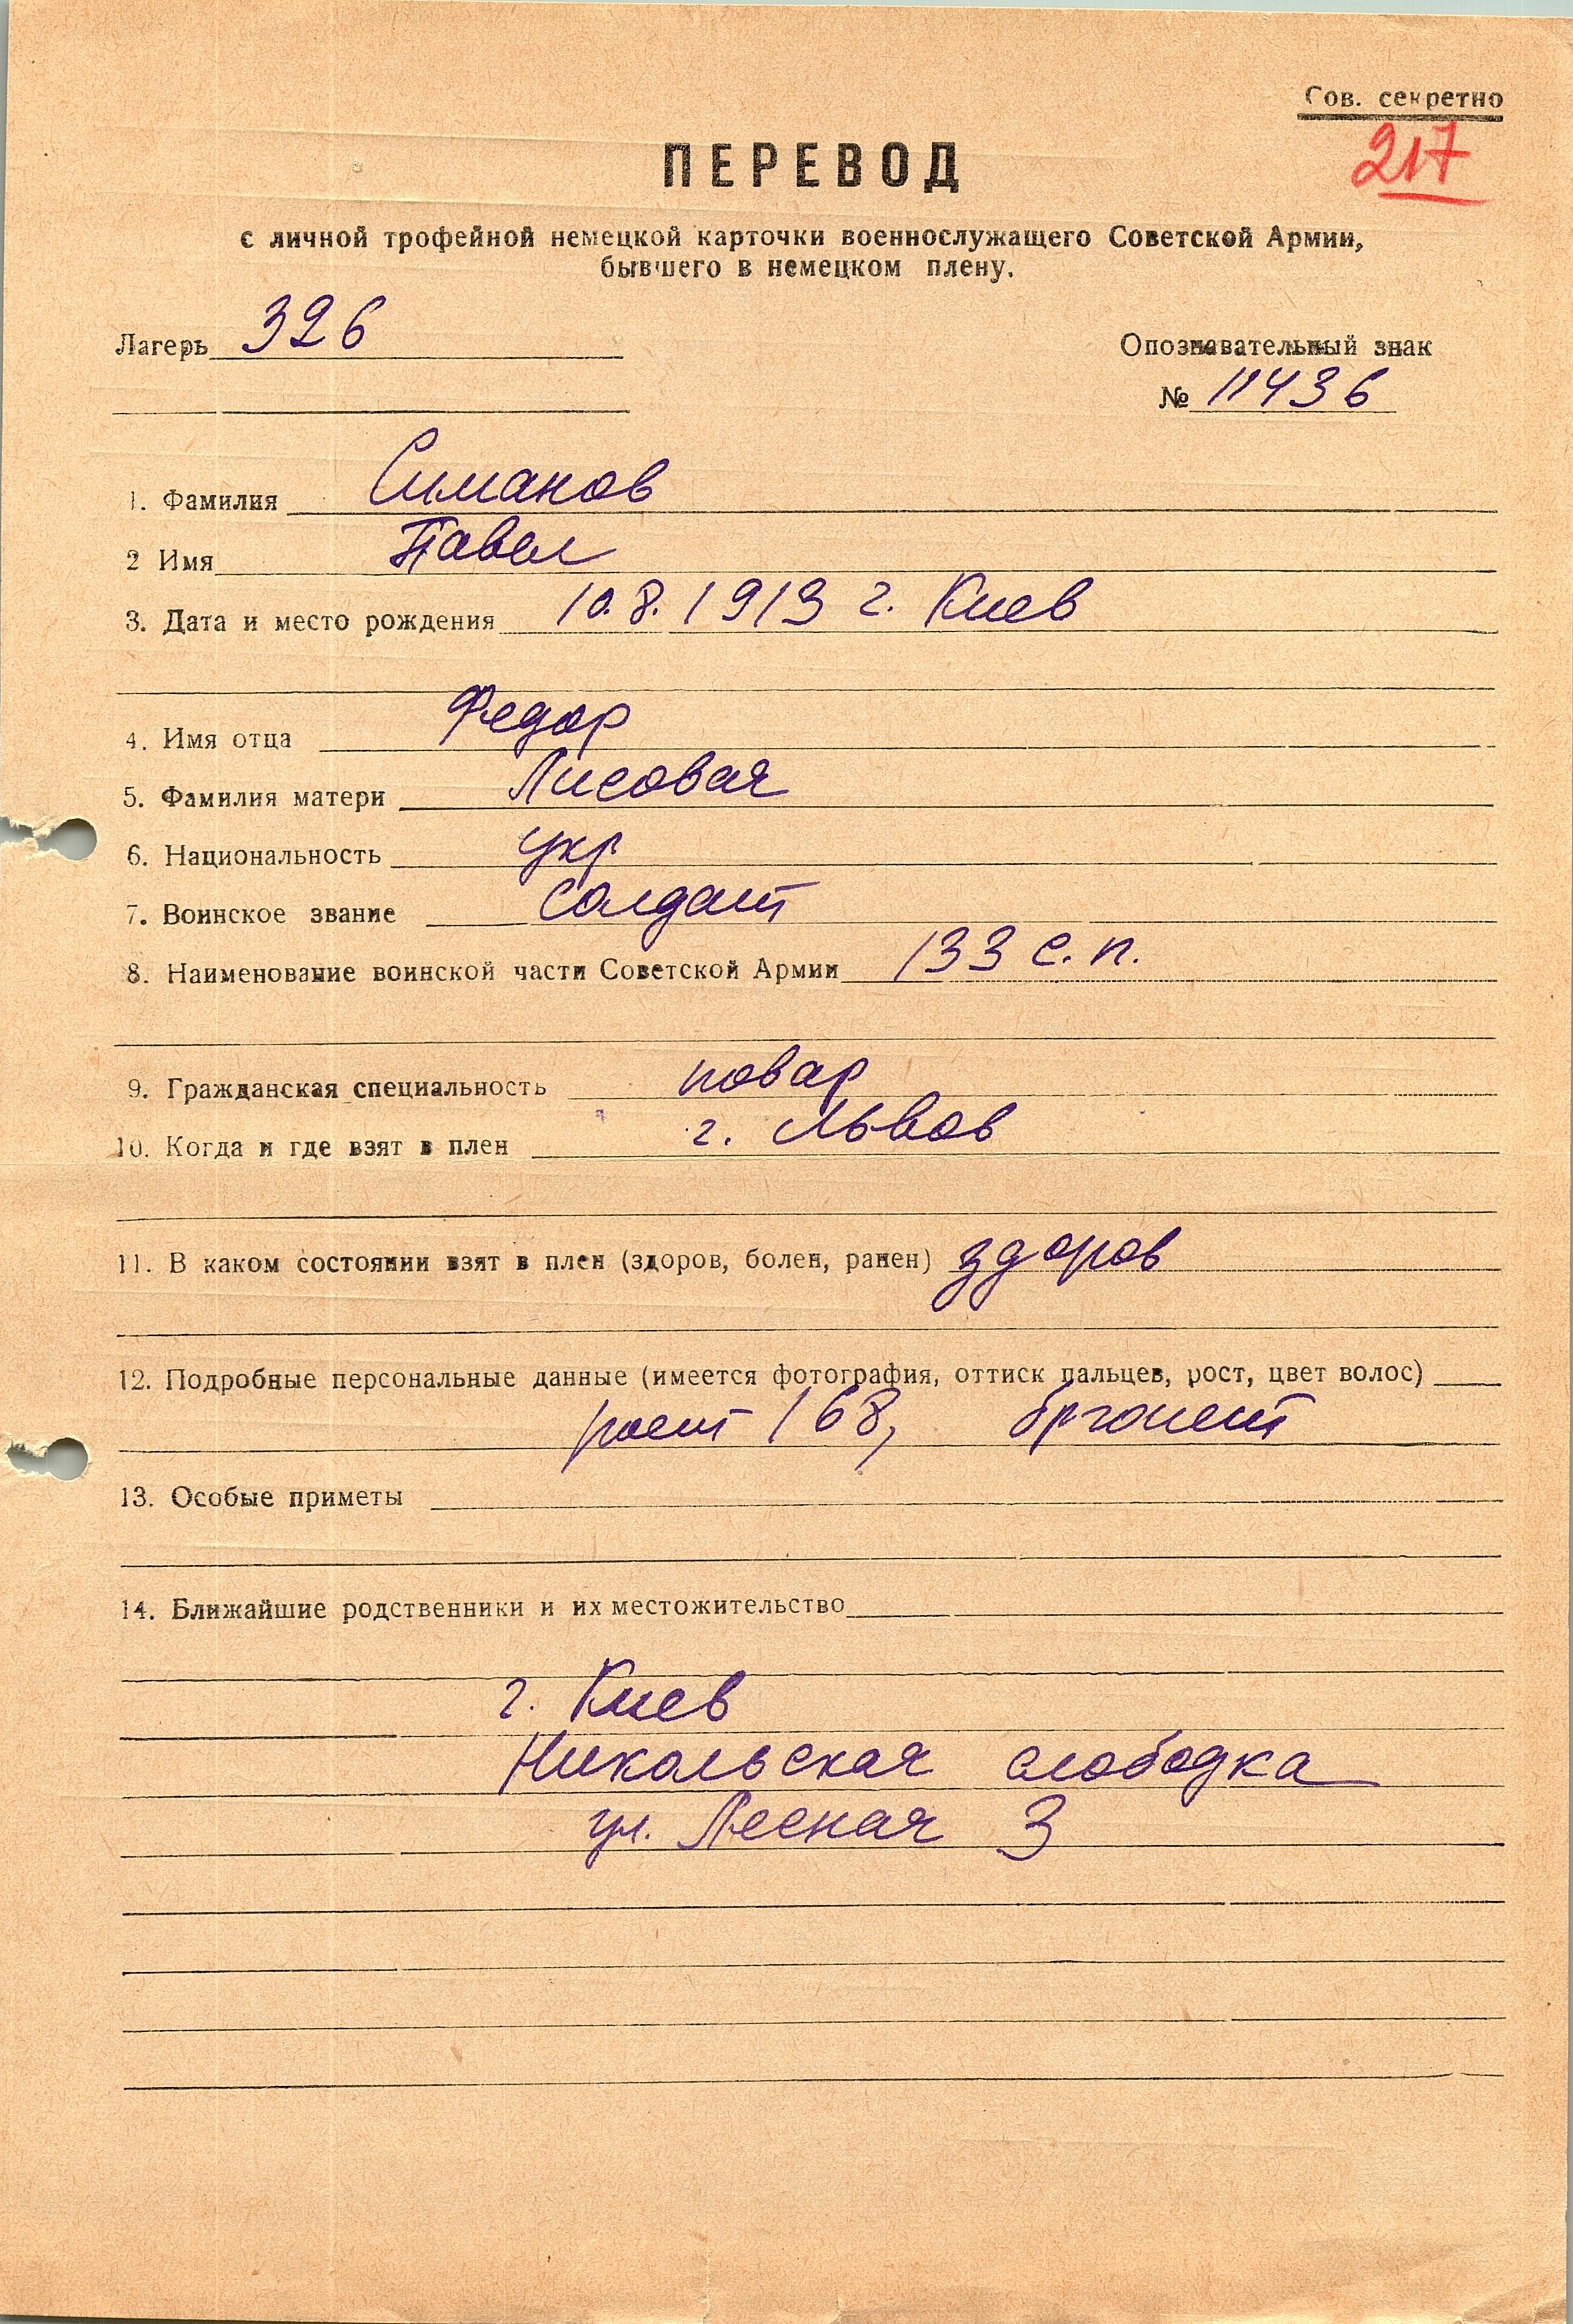 Сов. секретно
217
ПЕРЕВОД
с личной трофейной немецкой карточки военнослужащего Советской Армии,
бывшего в немецком плену.
Лагерь 326
Опознавательный знак
№ 11436
1. Фамилия Симанов
2 Имя Павел
3. Дата и место рождения 10.8.1913 г. Киев
4. Имя отца Федор
5. Фамилия матери Лисовая
6. Национальность укр
7. Воинское звание солдат
8. Наименование воинской части Советской Армии 133 с.п.
9. Гражданская специальность повар
10. Когда и где взят в плен г. Львов
11. В каком состоянии взят в плен (здоров, болен, ранен) здоров
12. Подробные персональные данные (имеется фотография, оттиск пальцев, рост, цвет волос)
рост 168, брюнет
13. Особые приметы
14. Ближайшие родственники и их местожительство
г. Киев
Никольская слободка
ул. Лесная 3